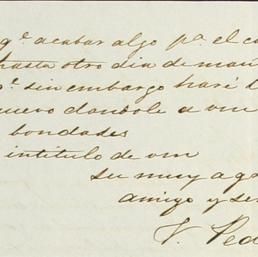 q.e acabar algo p.a el co
hasta otro dia de mañ
p.o sin embargo haré l
nuevo dandole a vm
bondades
intitulo de vm
su muy ag
amigo y se
V. Ped